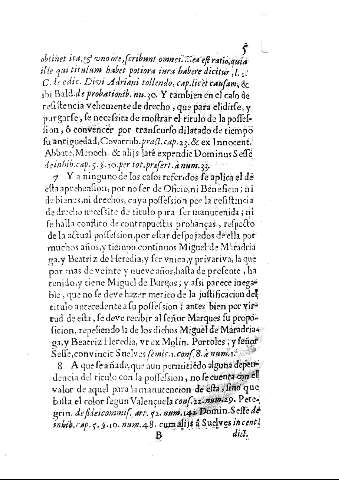 5
obtinet ita, ss. uno ore, scribunt omnes. Ea est ratio, quia
ille qui titulum habet potiora iura habere dicitur, l. 2.
C. de edic. Divi Adriani tollendo, cap. licet causam, &
ibi Bald. de probationib. nu. 30. Y tambien en el caso de
resistencia vehemente de derecho, que para elidirse, y
purgarse, se necessita de mostrar el titulo de la posses-
sion, ò convencer por transcurso dilatado de tiempo
su antiguedad, Covarrub. pract. cap. 23. & ex Innocent.
Abbate, Menoch. & alijs latè expendit Dominus Sesse
de inhib. cap. 5. §. 10. per tot. præsert. à num. 33.
7 Y a ninguno de los casos referidos se aplica el de
esta aprehension, por no ser de Oficio, ni Beneficio; ni
de bienes, ni derechos, cuya possession por la resistencia
de derecho necessite de titulo para ser manutenida; ni
se halla conflito de contrapuestas probanças, respecto
de la actual possession, por estar despojados de ella por
muchos años, y tiempo continuos Miguel de Maradria
ga, y Beatriz de Heredia, y ser vnica, y privativa, la que
por mas de veinte y nueve años, hasta de presente, ha
tenido, y tiene Miguel de Barques; y assi parece inega-
ble, que no se deve hazer merito de la justificacion del
titulo antecedente a su possession i antes bien por vir-
tud de esta, se deve recibir al señor Marques su propo-
sicion, repeliendo la de los dichos Miguel de Maradria-
ga, y Beatriz Heredia, vt ex Molin. Portoles, y señor
Sesse, convincit Suelves semic. 1. cons. 8. à num. 1.
8 A que se añade, que aun permitiédo alguna depen-
dencia del titulo con la possession, no se cuenta con el
valor de aquel para la manutencion de esta, sino que
basta el color segun Valençuela cons. 22. num. 29. Pere-
grin. de fideicommiss. art. 52. num. 142. Domin. Sesse de
inhib. cap. 5. §. 10. num. 48. cum alijs à Suelves in cent i
B dict.